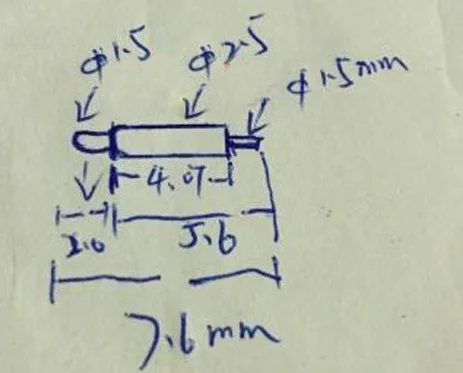 φ1.5
φ2.5
φ1.5mm
4.07
2.0
5.6
7.6mm